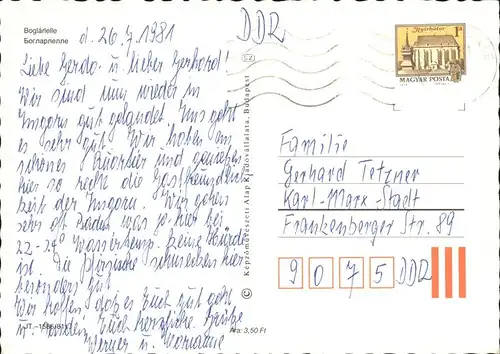 Boglárlelle
Богларлелле
d. 26.7.1981
DDR
Liebe Gerda u. lieber Gerhard!
Wir sind nun wieder in
Ungarn gut gelandet. Uns geht
es sehr gut. Wir haben ein
schönes Quartier und genießen
hier so recht die Gastfreundlich
keit der Ungarn. Wir gehen
sehr oft baden, was ja hier bei
22-24° Wassertemp. keine Hürde
ist. Die Pfirsiche schmecken hier
besonders gut.
Wir hoffen, daß es Euch gut geht
u. senden Euch herzliche Grüße
Werner u. Marianne
Képzőművészeti Alap Kiadóvállalata, Budapest
Ára: 3,50 Ft
Nyírbátor
1Ft
MAGYAR POSTA
Familie
Gerhard Tetzner
Karl-Marx-Stadt
Frankenberger Str. 89
9 0 7 5 DDR